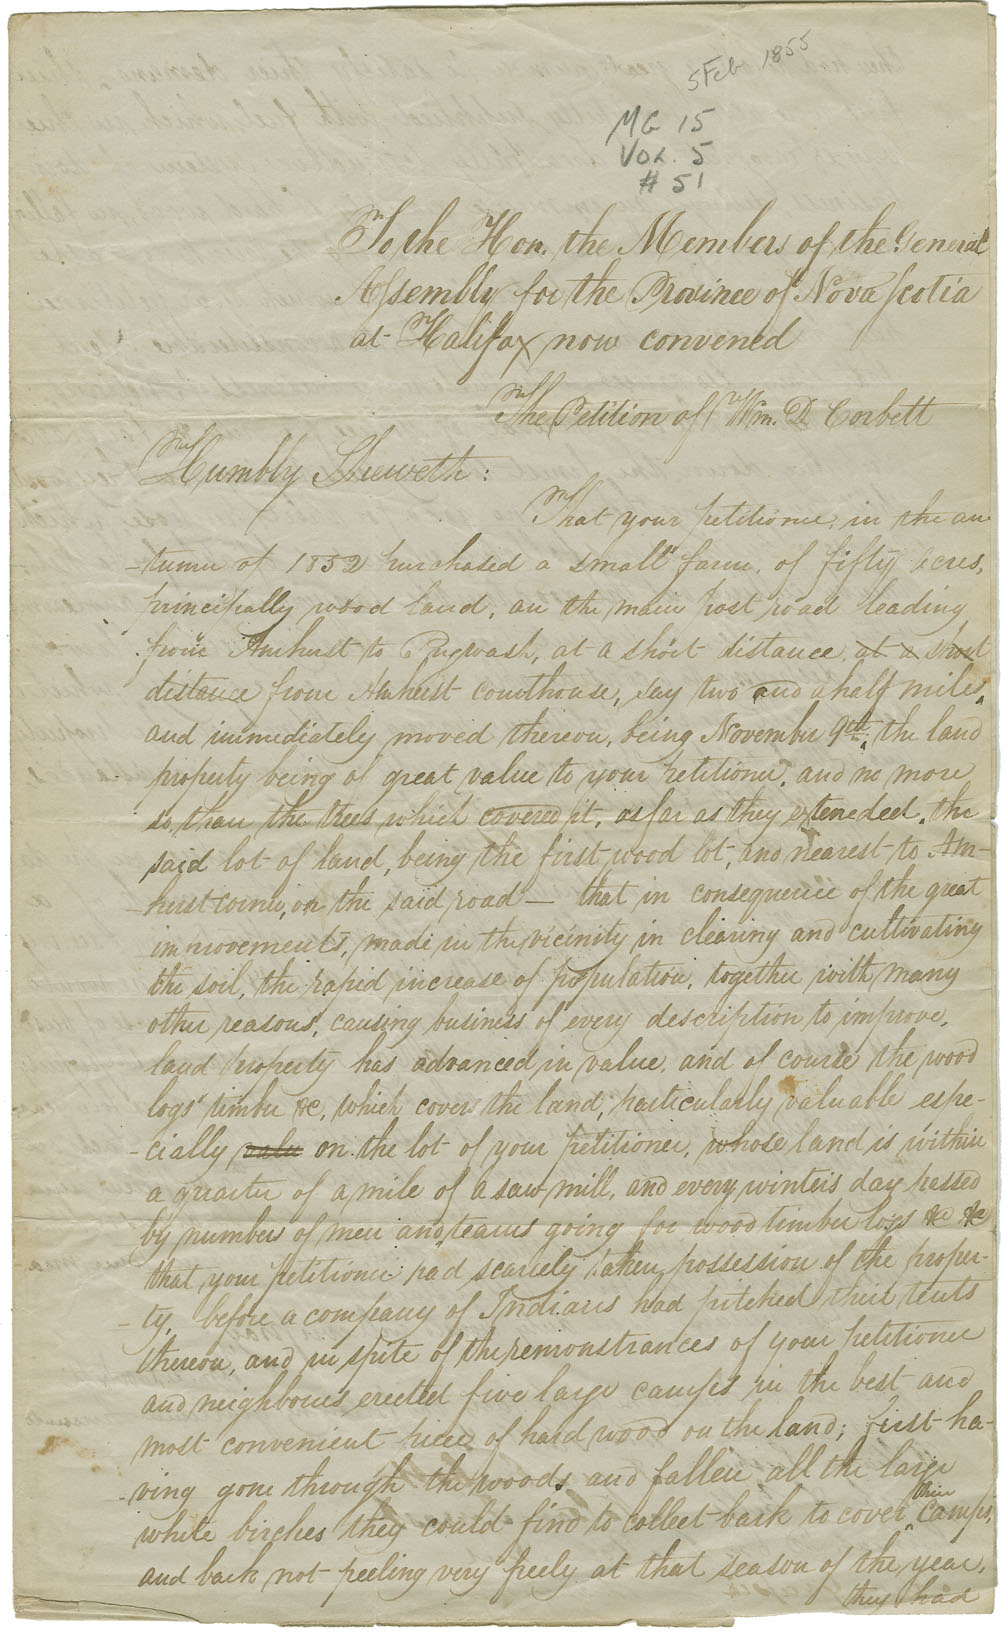 5 Feb 1855
MG 15
VOL. 5
# 51
To the Hon. the Members of the General
Assembly for the Province of Nova Scotia
at Halifax now convened
The Petition of Wm. D Corbett
Humbly Sheweth:
That your petitioner, in the au-
-tumn of 1852 purchased a small farm, of fifty acres,
principally wood land, on the main post road leading
from Amherst to Pugwash, at a short distance, at a short
distance from Amherst courthouse, say two and a half miles,
and immediately moved thereon, being November 9th, the land
property being of great value to your petitioner, and no more
so, than the trees which covered it, as far as they extended, the
said lot of land, being the first wood lot, and nearest to Am-
-herst corner, on the said road — that in consequence of the great
improvements, made in the vicinity in clearing and cultivating
the soil, the rapid increase of population, together with many
other reasons, causing business of every description to improve,
land property has advanced in value, and of course the wood
logs timber &c, which covers the land, particularly valuable espe-
-cially valu on the lot of your petitioner, whose land is within
a quarter of a mile of a saw mill, and every winters day passed
by numbers of men and teams going for wood timber logs &c &c
that your petitioner had scarcely taken possession of the proper-
-ty, before a company of Indians had pitched their tents
thereon, and in spite of the remonstrances of your petitioner
and neighbours erected five large camps in the best and
most convenient piece of hard wood on the land; first ha-
-ving gone through the woods and fallen all the large
white birches they could find to collect bark to cover their camps,
and bark not peeling very freely at that season of the year,
they had